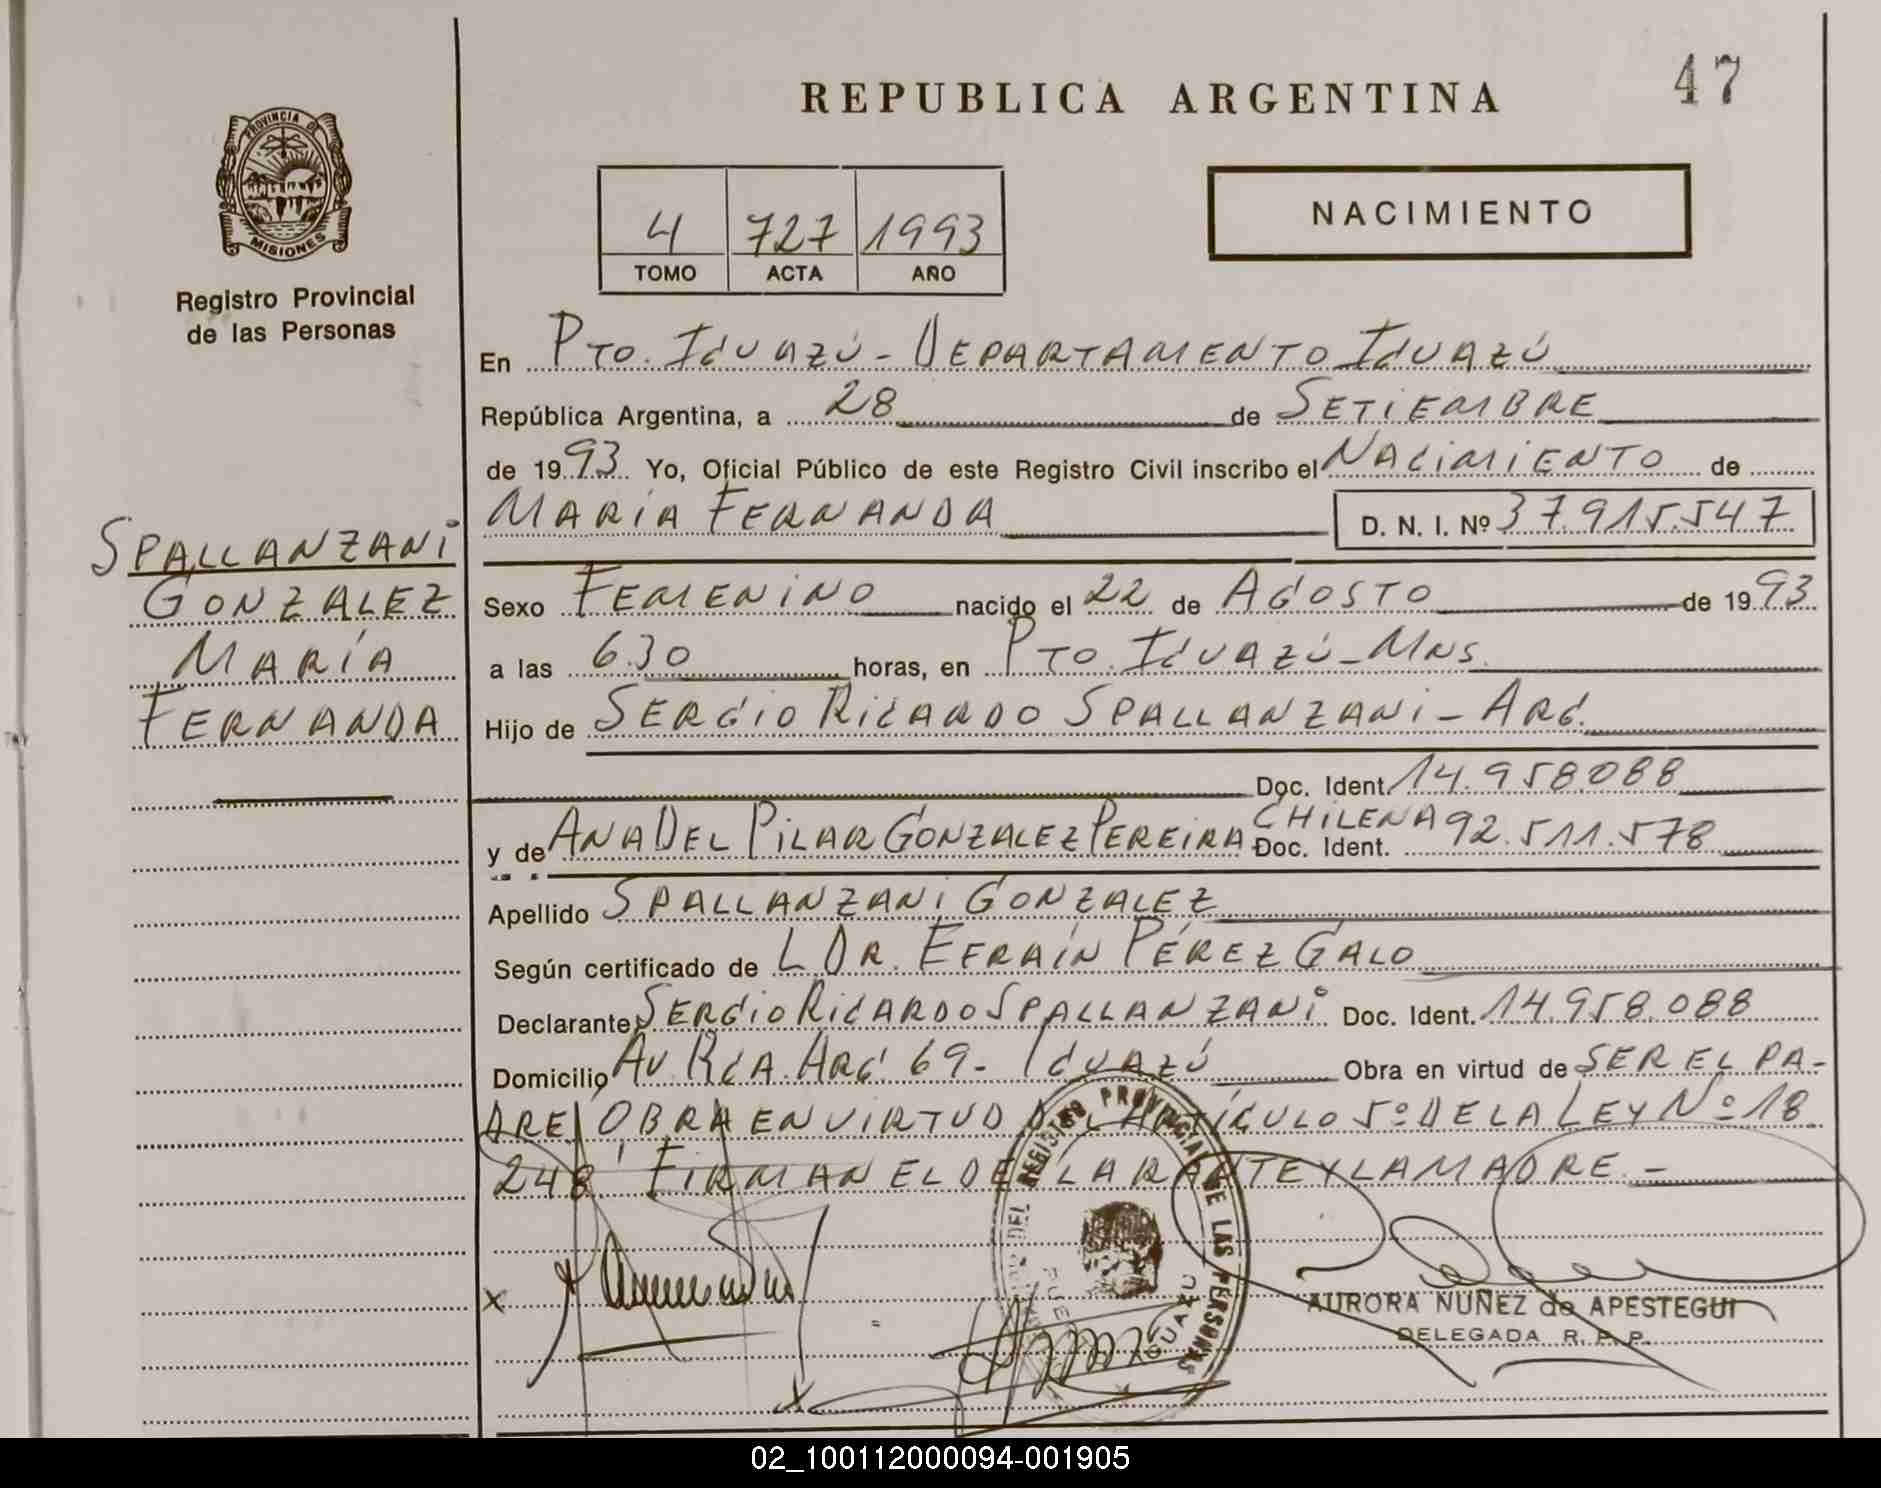 47
REPUBLICA ARGENTINA
PROVINCIA DE
MISIONES
Registro Provincial
de las Personas
NACIMIENTO
4 727 1993
TOMO ACTA AÑO
En Pto. Iguazú - Departamento Iguazú
República Argentina, a 28 de Setiembre
de 1993 Yo, Oficial Público de este Registro Civil inscribo el Nacimiento de
María Fernanda D. N. I. Nº 37.915.547
Spallanzani
Gonzalez
María
Fernanda
Sexo Femenino nacido el 22 de Agosto de 1993
a las 6.30 horas, en Pto. Iguazú - Mns.
Hijo de Sergio Ricardo Spallanzani - Arg.
Doc. Ident. 14.958.088
y de Ana Del Pilar Gonzalez Pereira Chilena Doc. Ident. 92.511.578
Apellido Spallanzani Gonzalez
Según certificado de L Dr. Efraín Pérez Galo
Declarante Sergio Ricardo Spallanzani Doc. Ident. 14.958.088
Domicilio Av. Rca. Arg. 69 - Iguazú Obra en virtud de ser el pa-
dre, Obra en virtud del Artículo 5º de la Ley Nº 18.
248 Firman el declarante y la madre. -
REGISTRO PROVINCIAL DE LAS PERSONAS
IGUAZU
AURORA NUÑEZ de APESTEGUI
DELEGADA R. P. P.
02_100112000094-001905